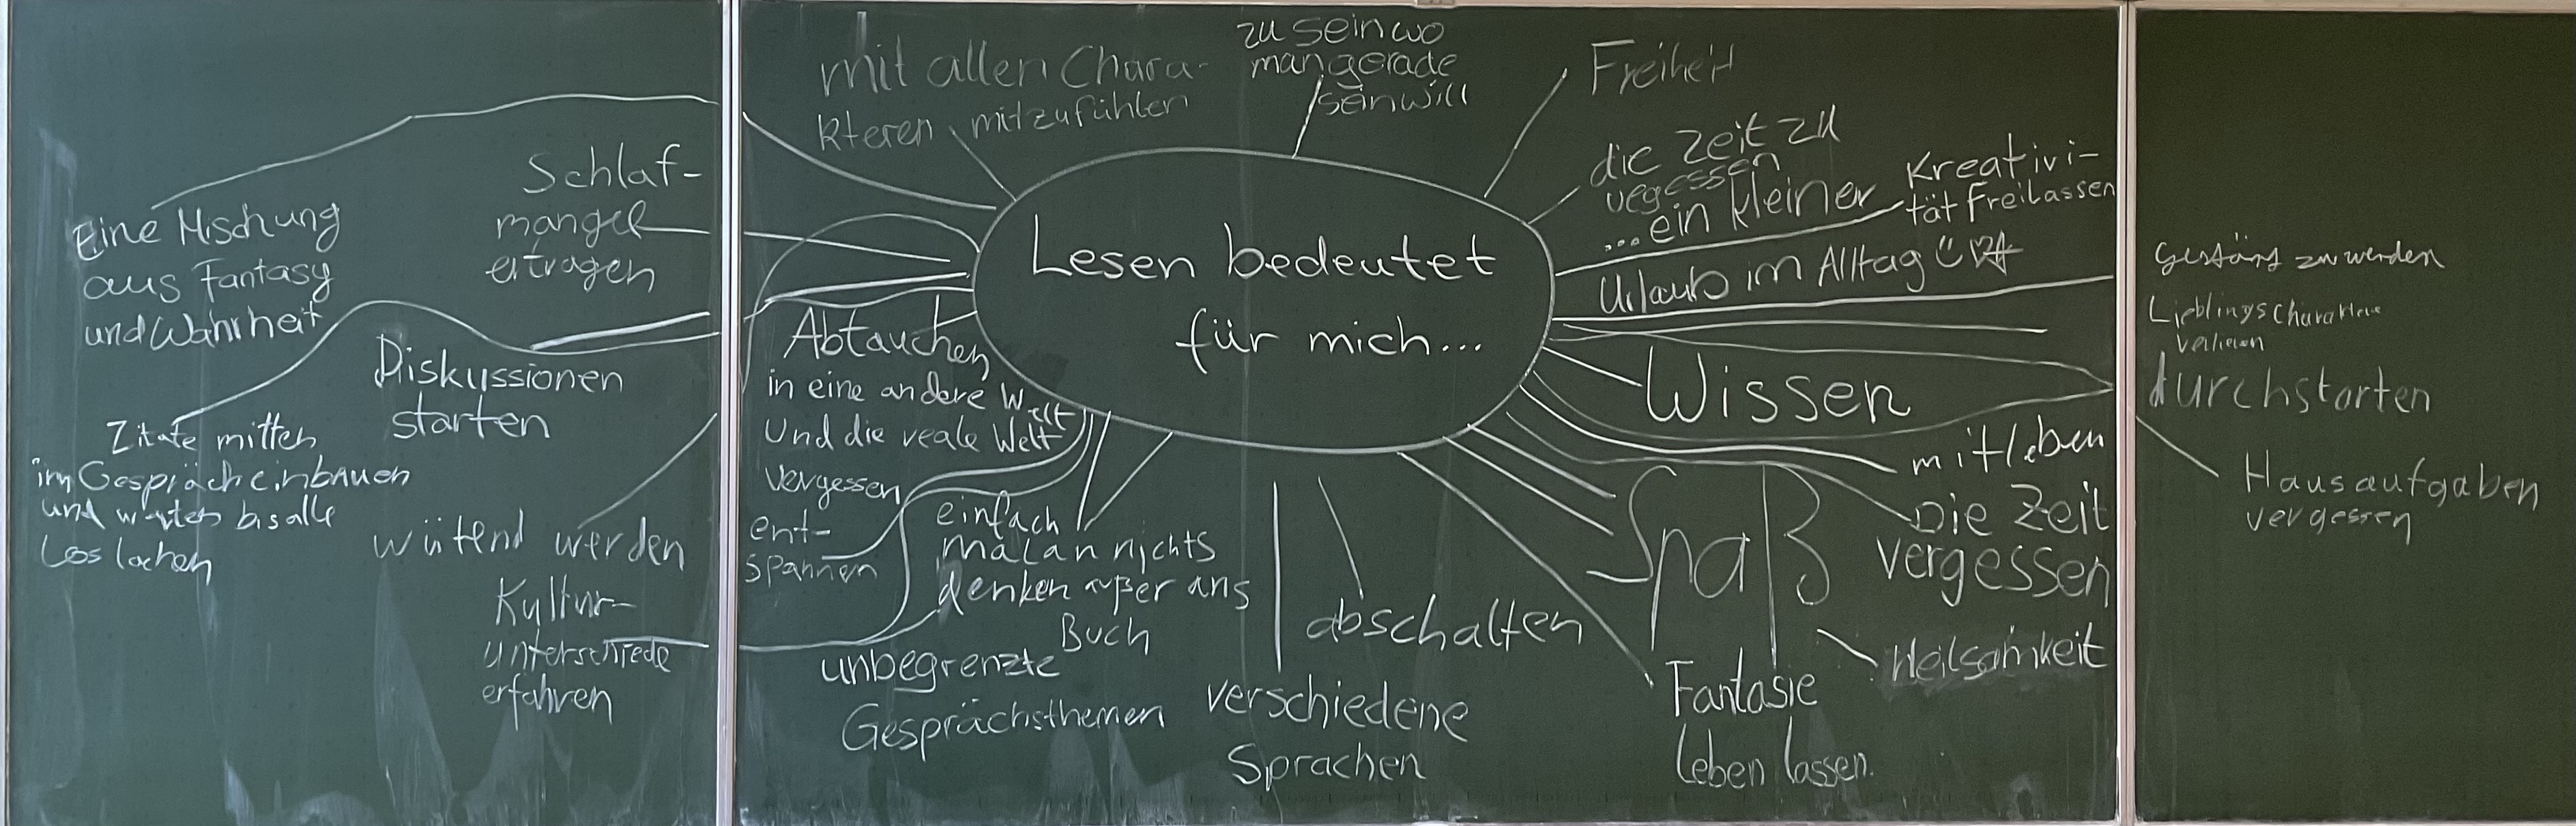 Eine Mischung
aus Fantasy
und Wahrheit
Schlaf-
mangel
ertragen
Diskussionen
starten
Zitate mitten
im Gespräch einbauen
und warten bis alle
los lachen
wütend werden
Kultur-
unterschiede
erfahren
mit allen Chara-
kteren mitzufühlen
zu sein wo
man gerade
sein will
Freiheit
die Zeit zu
vegessen
Kreativi-
tät Freilassen
... ein kleiner
Urlaub im Alltag
Lesen bedeutet
für mich...
Abtauchen
in eine andere Welt
und die reale Welt
vergessen
ent-
spannen
einfach
mal an nichts
denken außer ans
Buch
unbegrenzte
Gesprächsthemen
verschiedene
Sprachen
abschalten
Wissen
mitleben
Spaß
Die Zeit
vergessen
Heilsamkeit
Fantasie
leben lassen.
gestört zu werden
Lieblingscharaktere
verlieren
durchstarten
Hausaufgaben
vergessen